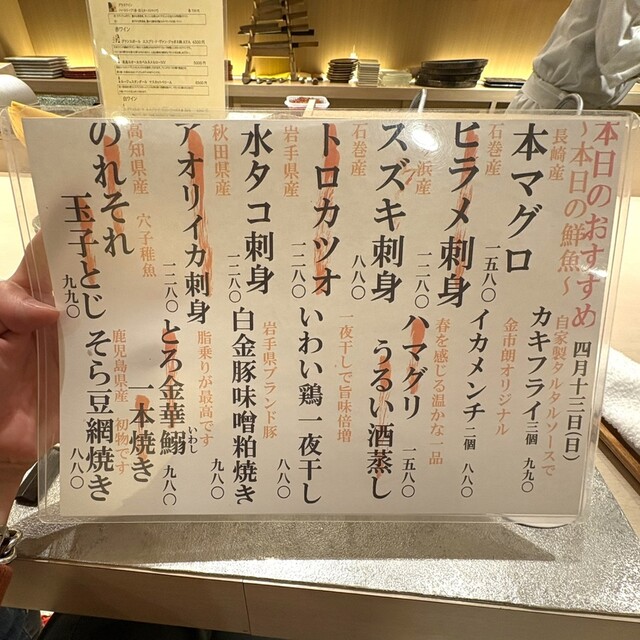 本日のおすすめ 四月十三日(日)
〜本日の鮮魚〜
長崎産
本マグロ 一五八〇
石巻産
ヒラメ刺身 一二八〇
浜産
スズキ刺身 八八〇
石巻産
トロカツオ 一二八〇
岩手県産
水タコ刺身 一二八〇
秋田県産
アオリイカ刺身 一二八〇
高知県産 穴子稚魚
のれそれ
玉子とじ 九九〇
自家製タルタルソースで
カキフライ 三個 九九〇
金市朗オリジナル
イカメンチ 二個 八八〇
春を感じる温かな一品
ハマグリ
うるい酒蒸し 一五八〇
一夜干しで旨味倍増
いわい鶏一夜干し 八八〇
岩手県ブランド豚
白金豚味噌粕焼き 九八〇
脂乗りが最高です
とろ金華鰯 いわし
一本焼き 九八〇
鹿児島県産 初物です
そら豆網焼き 八八〇
赤ワイン
白ワイン